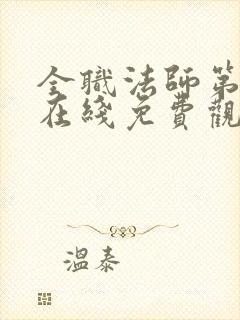 全職法師第
在綫免費觀
溫泰